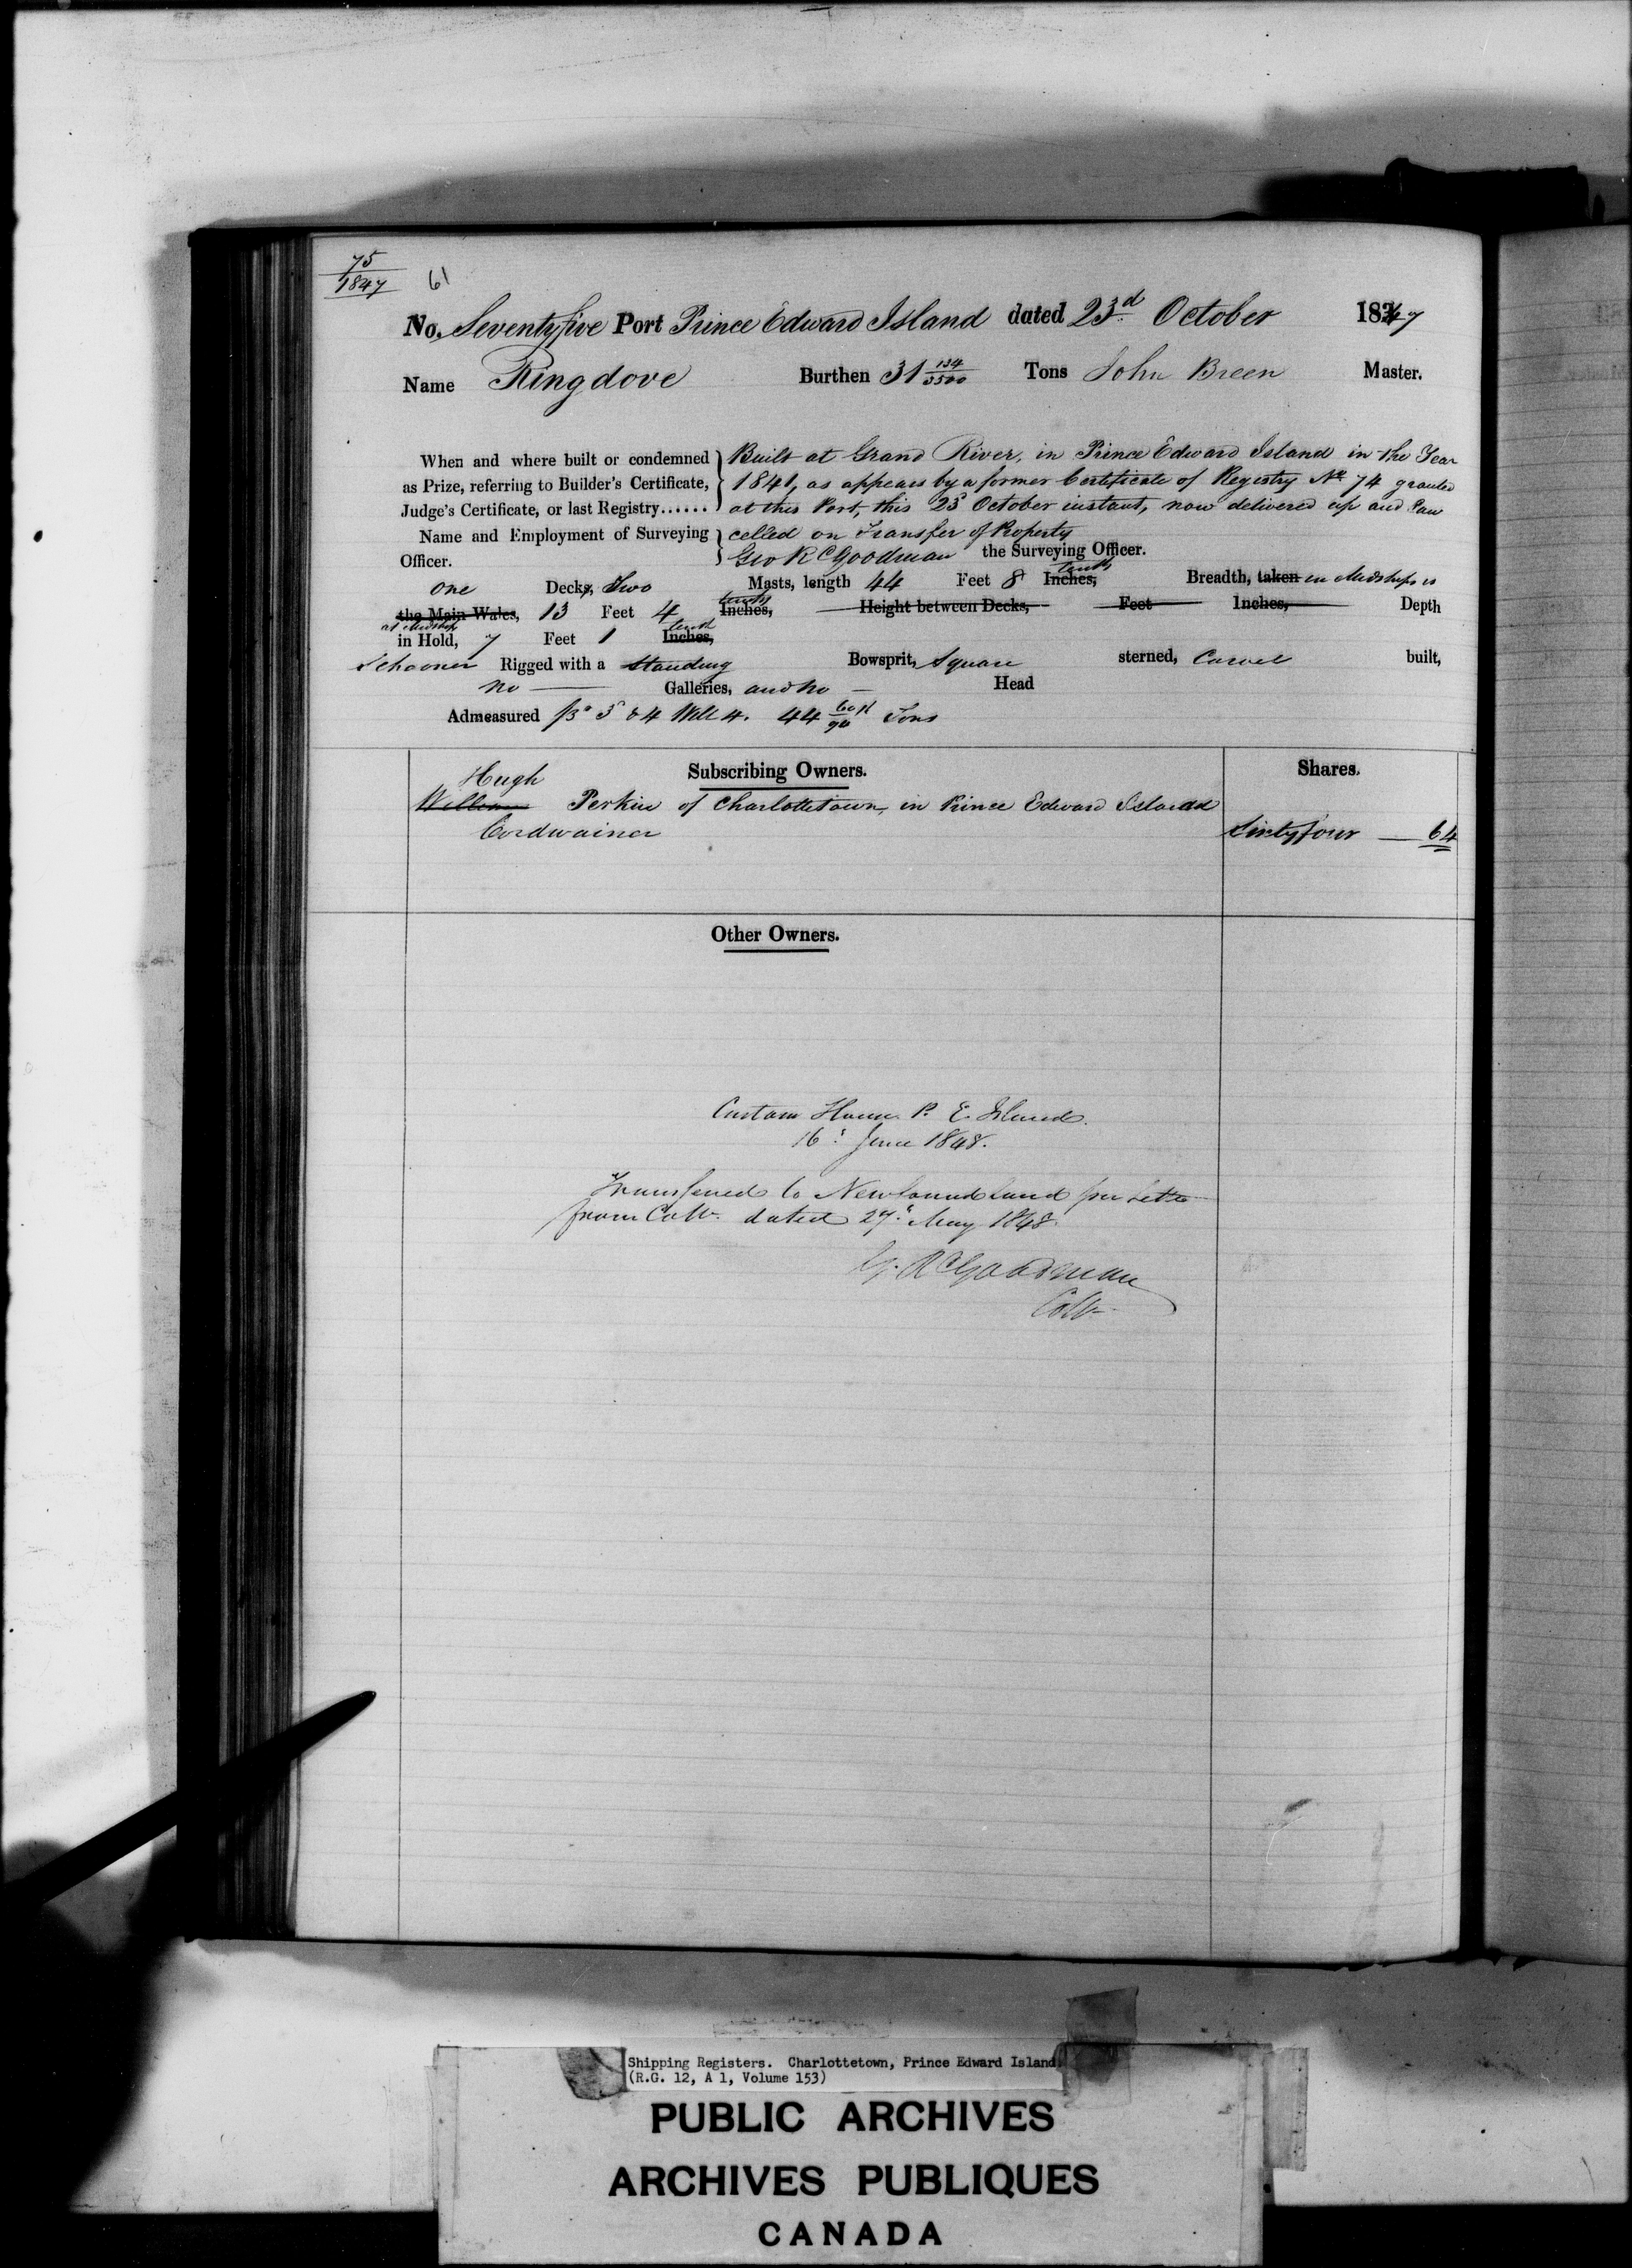 75
1847
61
No. Seventyfive Port Prince Edward Island dated 23d October 1847
Name Ringdove Burthen 31 134/3500 Tons John Breen Master.
When and where built or condemned as Prize, referring to Builder's Certificate, Judge's Certificate, or last Registry......
Built at Grand River, in Prince Edward Island in the Year
1841, as appears by a former Certificate of Registry No 74 granted
at this Port, this 23d October instant, now delivered up and Can
celled on Transfer of Property
Name and Employment of Surveying Officer.
Geo R C Goodman the Surveying Officer.
one Decks, Two Masts, length 44 Feet 8 Inches, tenths Breadth, taken in Midships is
the Main Wales, 13 Feet 4 Inches, tenths Height between Decks, Feet Inches, Depth
at Midships
in Hold, 7 Feet 1 Inches, tenth
Schooner Rigged with a standing Bowsprit, Square sterned, Carvel built,
no Galleries, and no Head
Admeasured 5 & 6 Will 4. 44 Tons
Subscribing Owners. Shares.
Hugh
William Perkin of Charlottetown, in Prince Edward Island
Cordwainer Sixtyfour 64
Other Owners.
Custom House P. E. Island.
16th June 1848.
Transferred to Newfoundland per Letter
from Collr. dated 27th May 1848.
G. R C Goodman
Collr
Shipping Registers. Charlottetown, Prince Edward Island
(R.G. 12, A 1, Volume 153)
PUBLIC ARCHIVES
ARCHIVES PUBLIQUES
CANADA